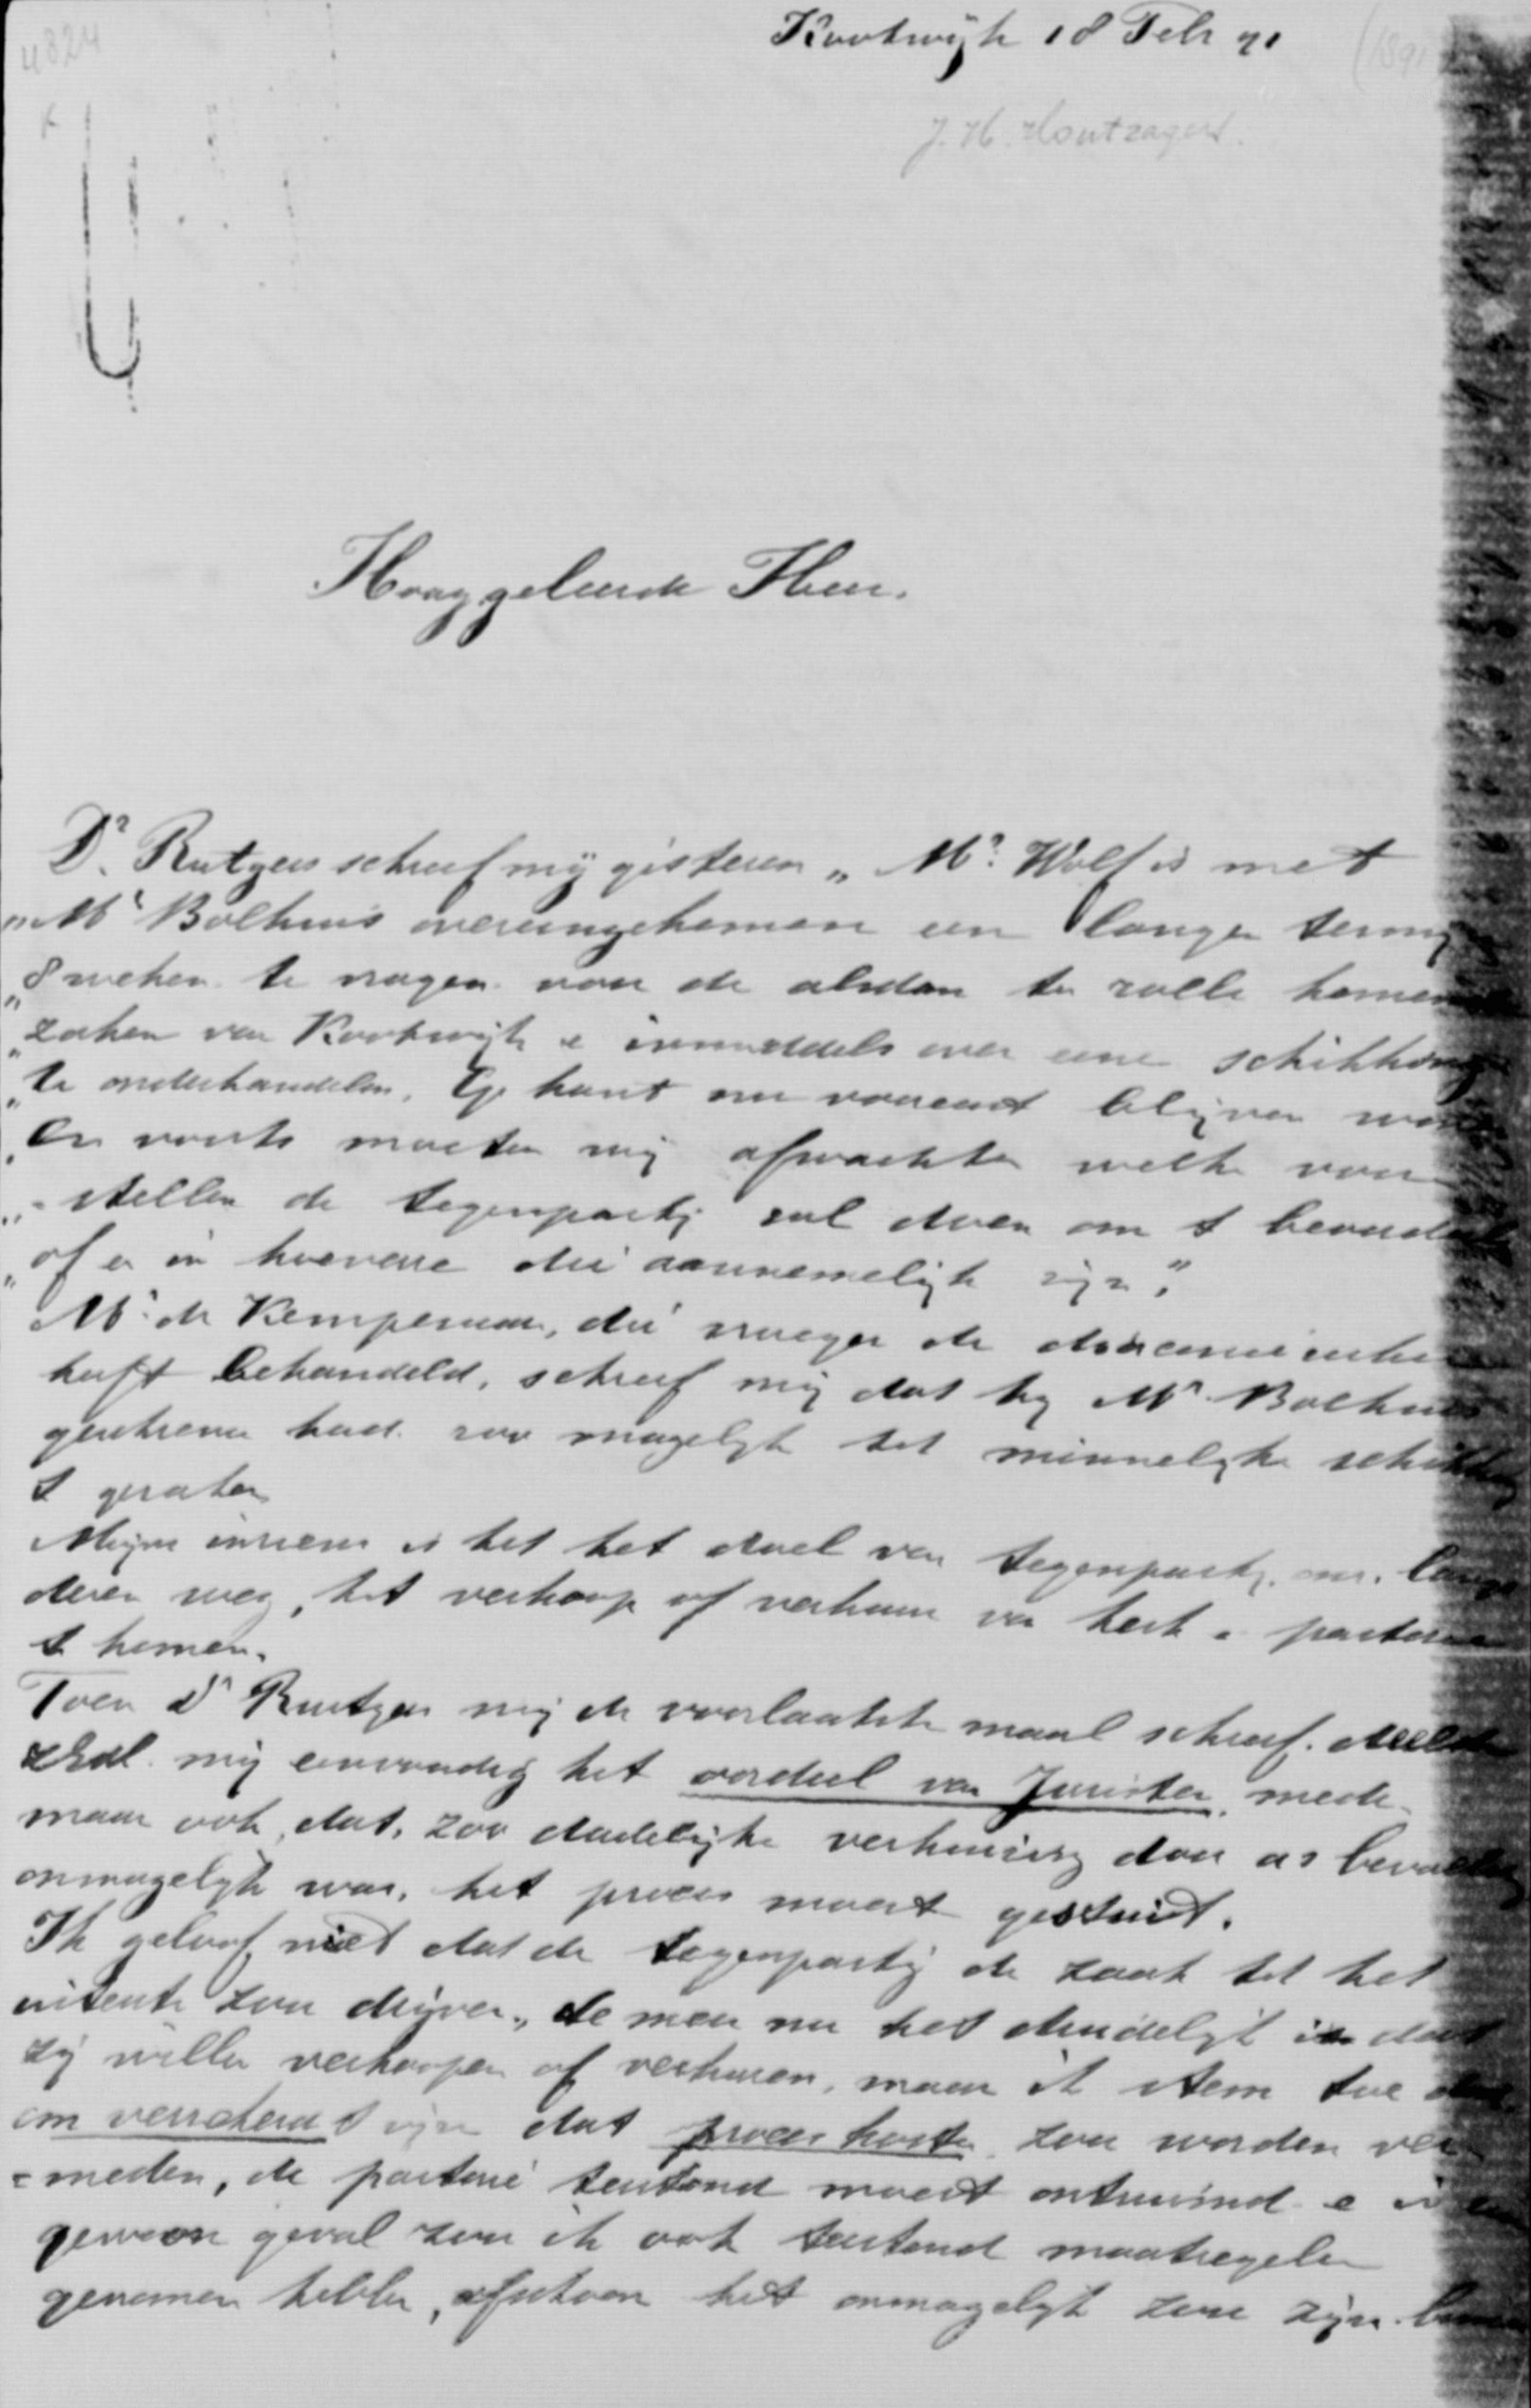 4824
Kootwijk 18 Feb 91
(1891
J. H. Houtzagers.
Hooggeleerde Heer.
Dr. Rutgers schreef mij gisteren „Mr. Wolf is met
„Mr Bolhuis overeengekomen een langen termijn
„8 weken te vragen voor de alsdan ter rolle komende
„zaken van Kootwijk e inmiddels over eene schikking
„te onderhandelen. Gij kunt nu vooreerst blijven wonen
„En voorts moeten wij afwachten welke voor-
„-stellen de tegenpartij zal doen om t beoordeelen
„of e in hoeverre die aannemelijk zijn."
Mr. de Kempenaer, die vroeger de
heeft behandeld, schreef mij dat hij Mr. Bolhuis
geschreven had zoo mogelijk tot minnelijke schikking
t geraken
Mijns inziens is het het doel van tegenpartij om langs
deren weg, tot verkoop of verhuur van kerk e pastorie
t komen.
Toen Dr Rutgers mij de voorlaatste maal schreef, deelde
ZEd. mij eenvoudig het oordeel van Juristen mede
maar ook, dat, zoo dadelijke verhuizing door as bevalling
onmogelijk was, het proces moest gestuit.
Ik geloof niet dat de tegenpartij de zaak tot het
uiterste zou drijven, te meer nu het duidelijk is dat
zij willen verkoopen of verhuren, maar ik stem toe
om verzekerd t zijn dat proceskosten zou worden ver-
=meden, de pastorie terstond moest ontruimd e in een
gewoon geval zou ik ook terstond maatregelen
genomen hebben, ofschoon het onmogelijk zou zijn